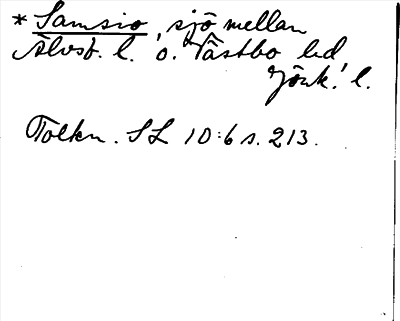 * Samsio, sjö mellan
Älvsb. l. o. Västbo hd
Jönk. l.
Tolkn. SL 10:6 s. 213.